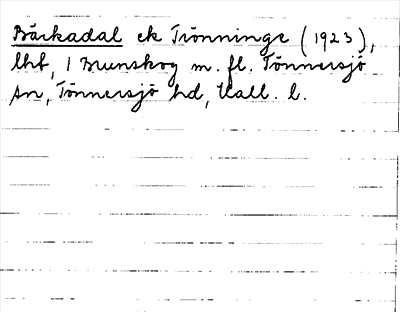 Bäckadal ek Trönninge (1923),
lht, 1 Brunskog m. fl. Tönnersjö
sn, Tönnersjö hd, Hall. l.